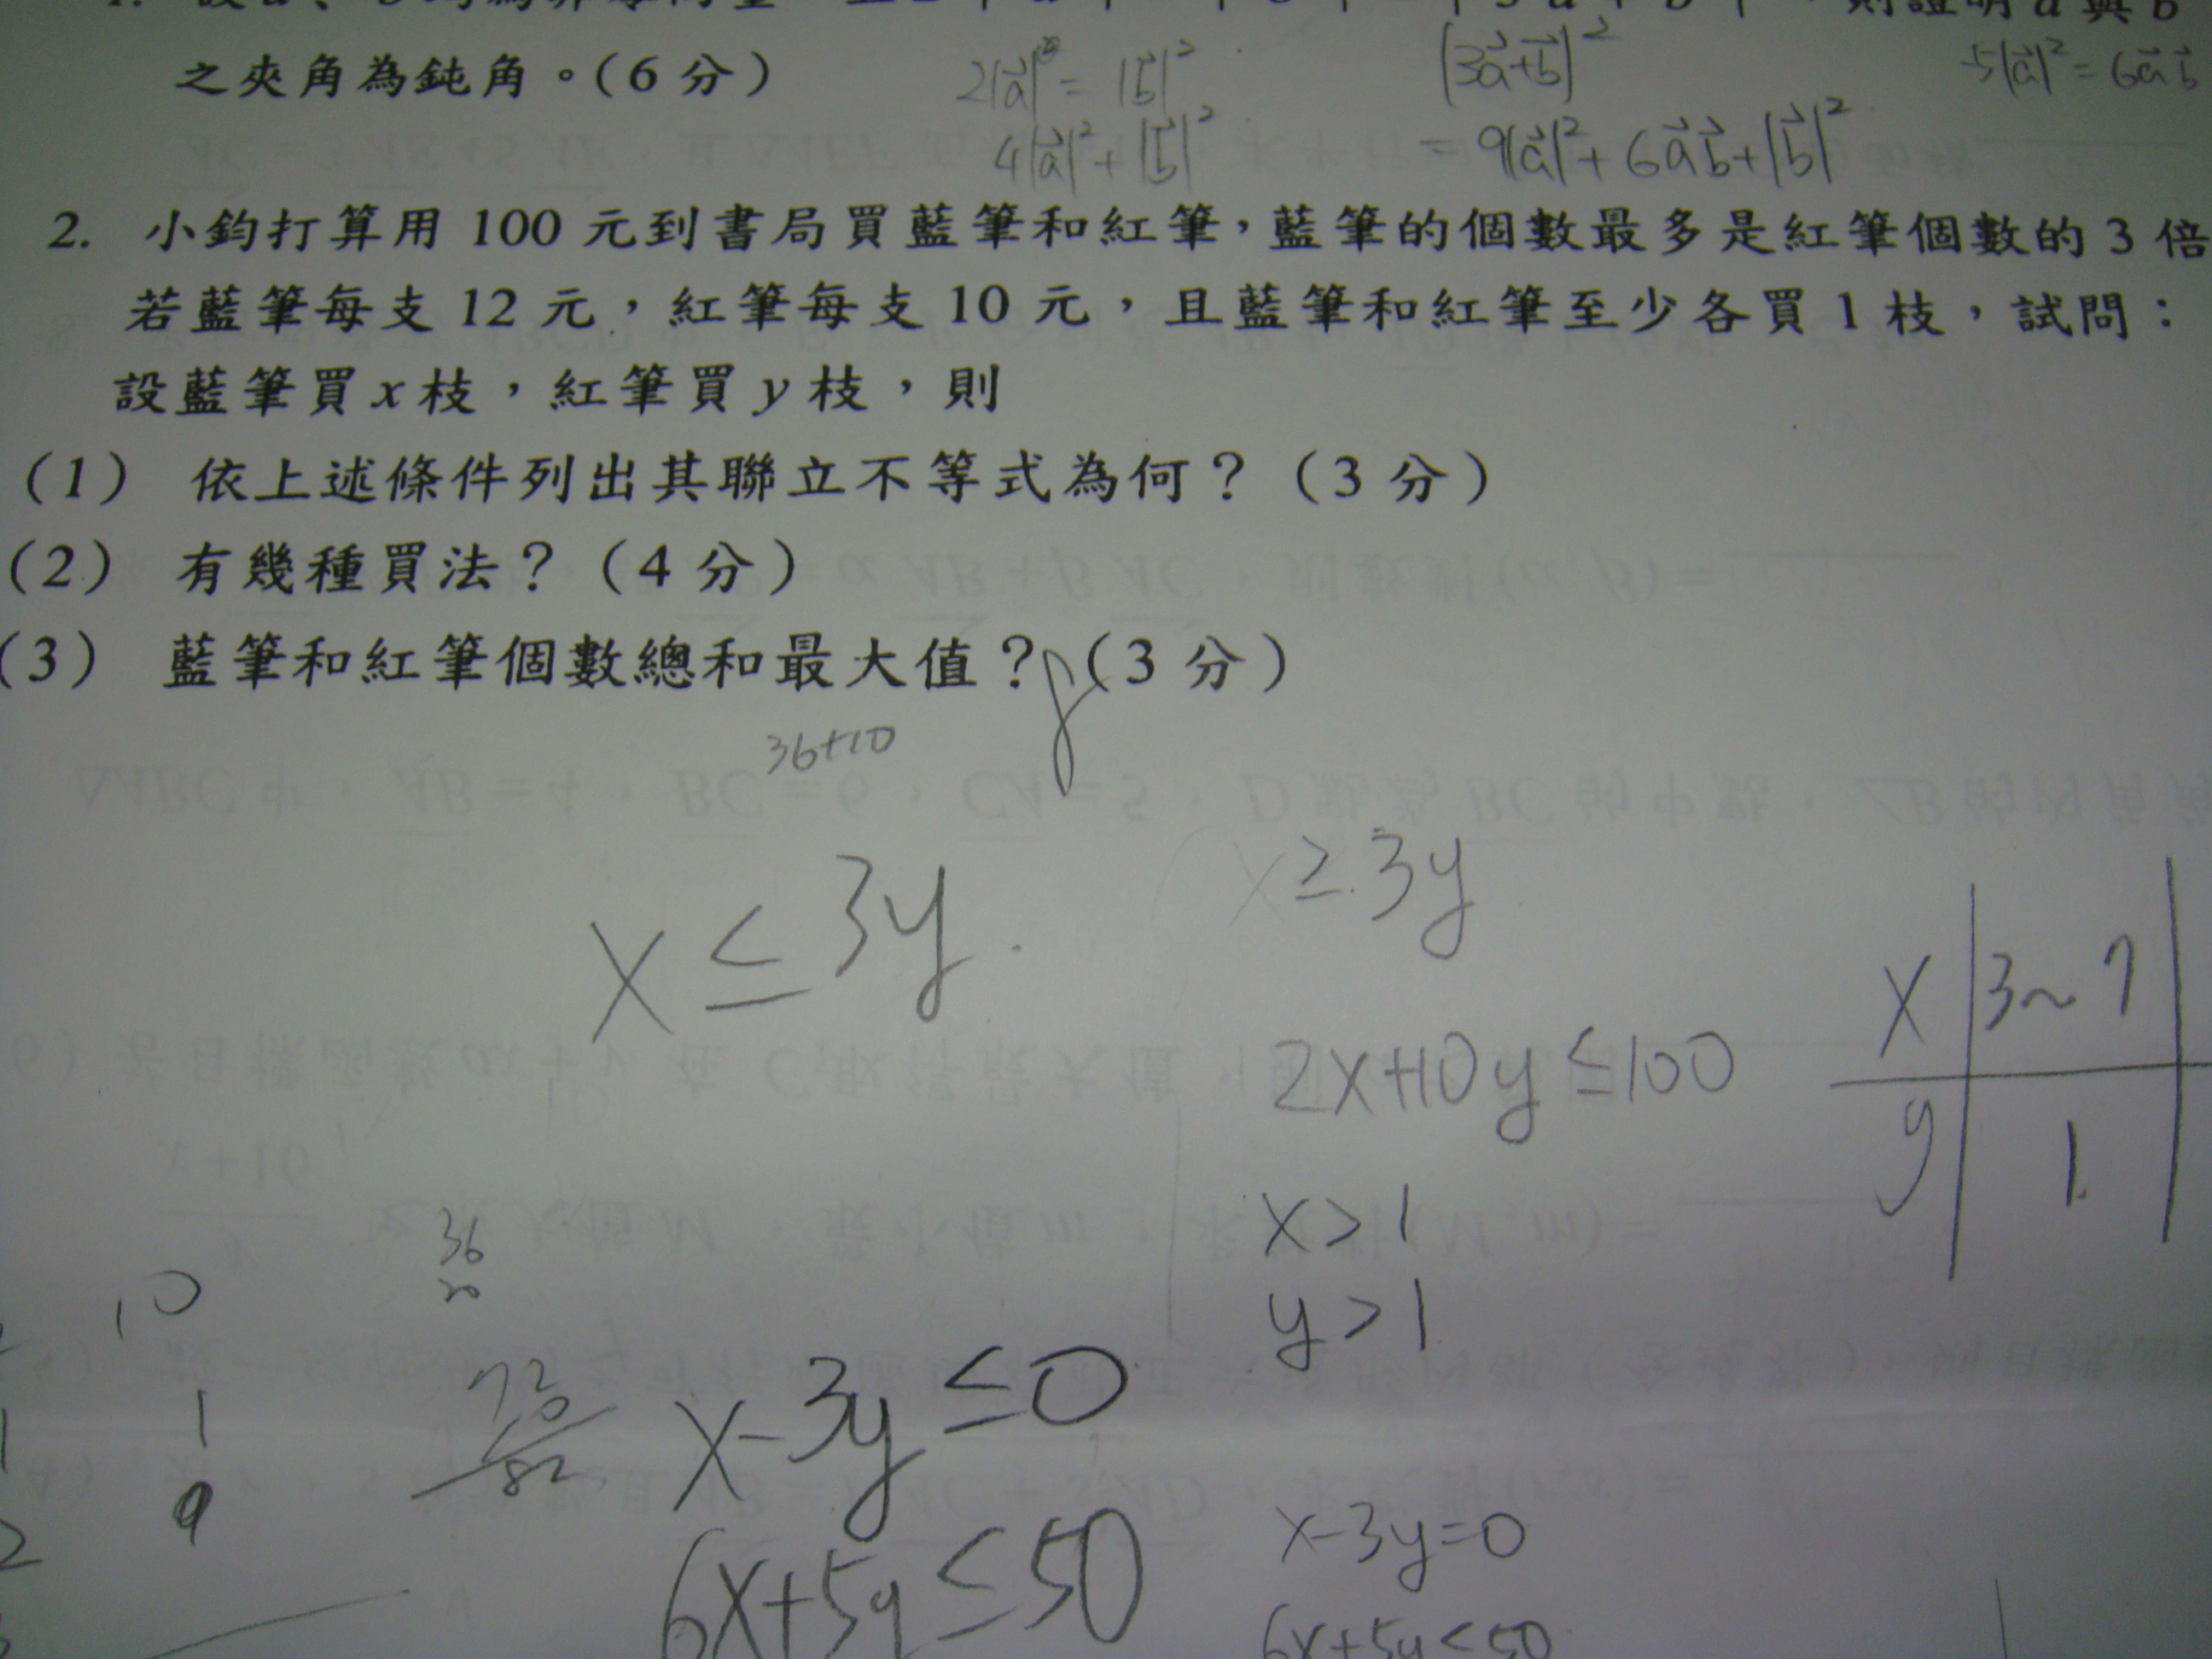 則證明 a 與 b
之夾角為鈍角。(6 分)
2|a|² = |b|²
|3a+b|²
-5|a|² = 6ab
4|a|² + |b|²
= 9|a|² + 6ab + |b|²
2. 小鈞打算用 100 元到書局買藍筆和紅筆，藍筆的個數最多是紅筆個數的 3 倍
若藍筆每支 12 元，紅筆每支 10 元，且藍筆和紅筆至少各買 1 枝，試問：
設藍筆買 x 枝，紅筆買 y 枝，則
(1) 依上述條件列出其聯立不等式為何？(3 分)
(2) 有幾種買法？(4 分)
(3) 藍筆和紅筆個數總和最大值？(3 分)
36+10
x ≤ 3y
x ≥ 3y
x 3~7
2x+10y ≤ 100
y 1
x > 1
36
20
y > 1
10
72
82
x-3y ≤ 0
1
9
x-3y=0
6x+5y ≤ 50
6x+5y ≤ 50